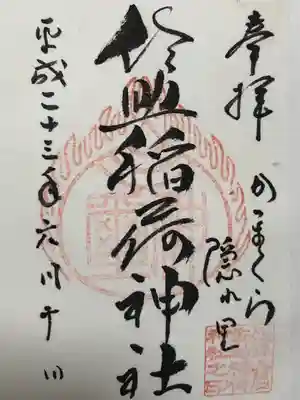 奉拝
かまくら
隠れ里
佐助稲荷神社
平成二十三年六月十八日